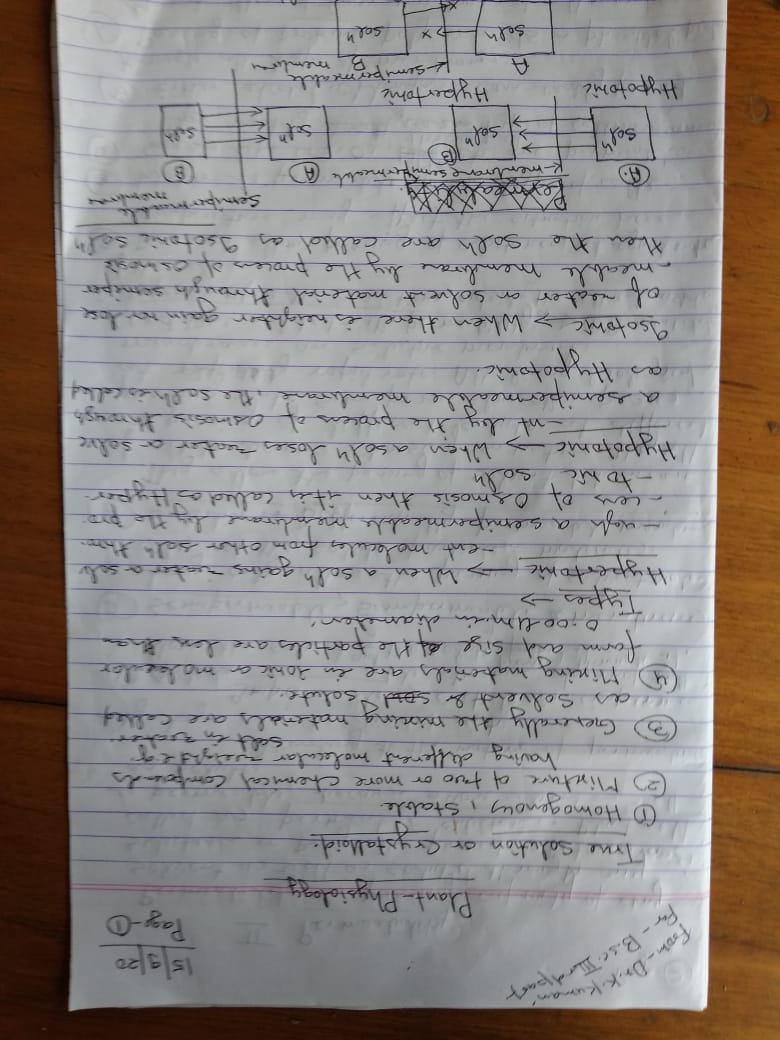 From - Dr. K. Kumari
For - B.Sc. III part
15/9/20
Page - ①
Plant - Physiology
True Solution or Crystalloid.
① Homogenous, Stable.
② Mixture of two or more chemical compounds
having different molecular weight eg.
salt in water.
③ Generally the mixing materials are called
as solvent & solute.
④ Mixing materials are in ionic or molecular
form and size of the particles are less than
0.001 um in diameter.
Types →
Hypertonic → When a solⁿ gains water or solv
-ent molecules from other solⁿ thro-
-ugh a semipermeable membrane by the pro-
-cess of Osmosis then it is called as Hyper-
-tonic solⁿ
Hypotonic → When a solⁿ loses water or solve
-nt by the process of Osmosis through
a semipermeable membrane the solⁿ is called
as Hypotonic.
Isotonic → When there is neighter gain nor lose
of water or solvent material through semiper
-meable membrane by the process of Osmosis
then the Solⁿ are called as Isotonic solⁿ
Permeable
semipermeable
membrane
Ⓐ
membrane semipermeable
Ⓑ
Ⓐ
Ⓑ
Solⁿ
Solⁿ
Solⁿ
Solⁿ
Hypotonic
Hypertonic
A
semipermeable
membrane
B
Solⁿ
x
x
Solⁿ